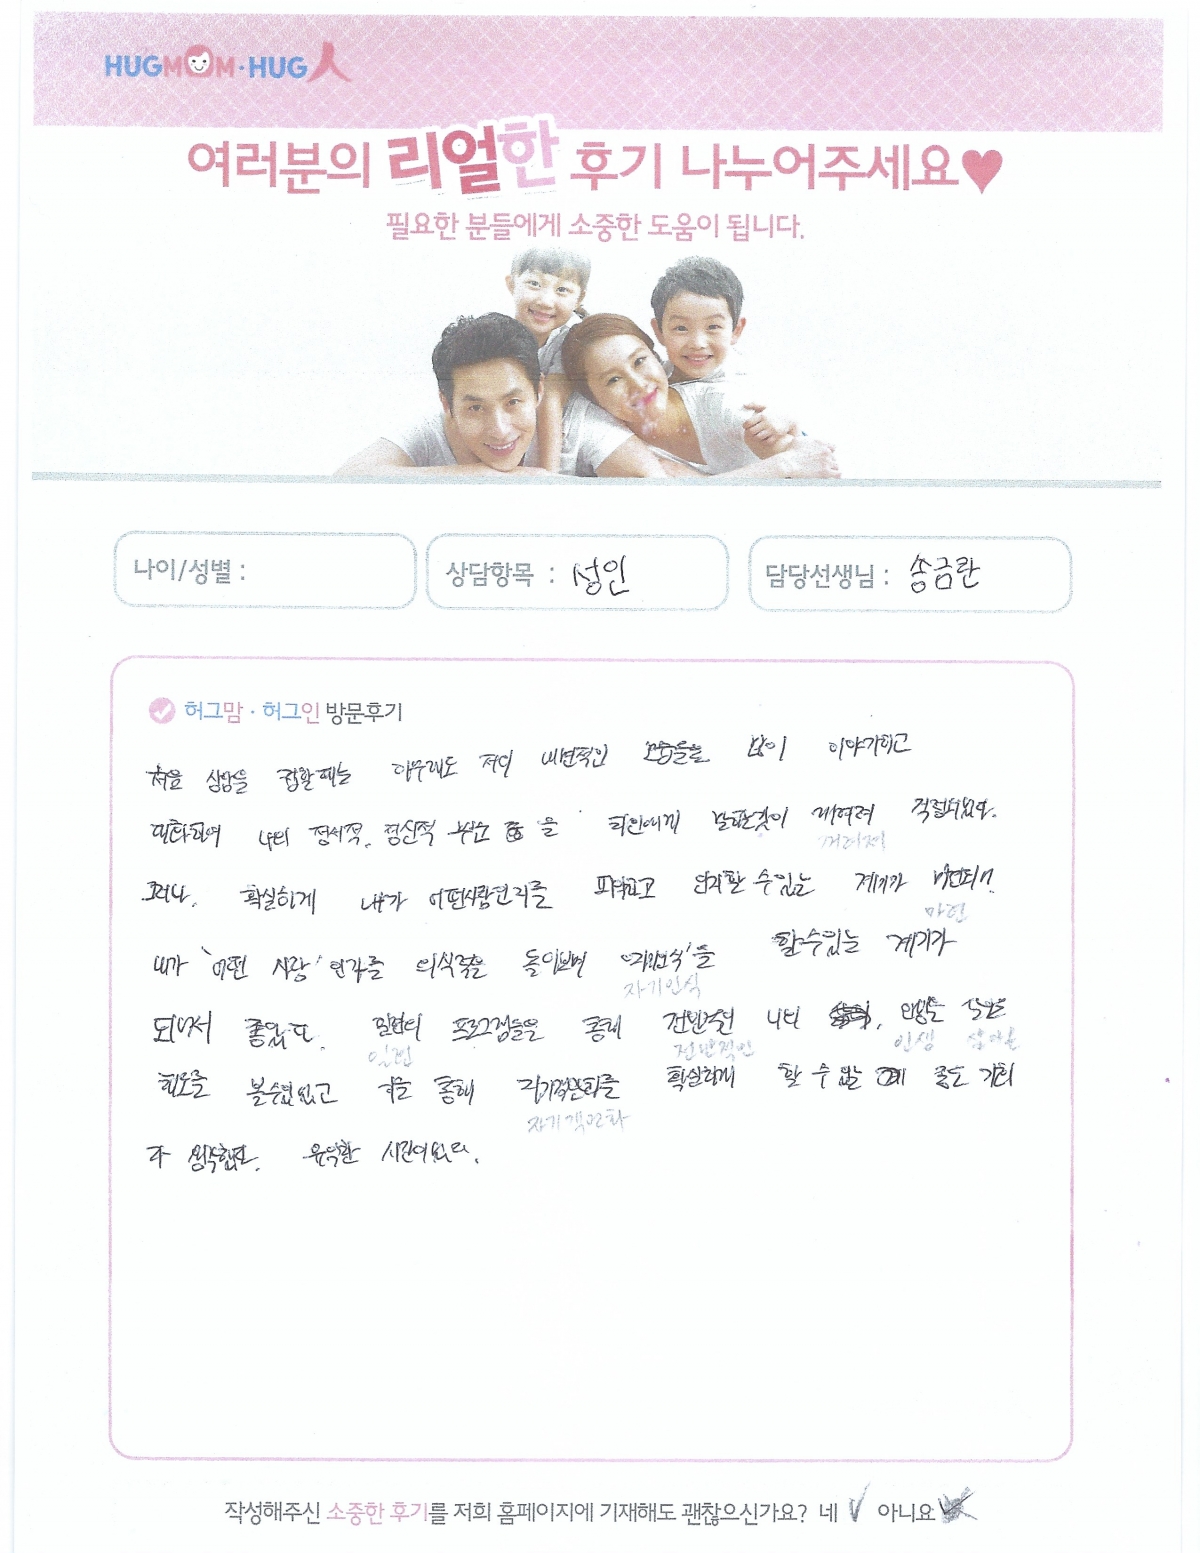 HUGMOM·HUG人
여러분의 리얼한 후기 나누어주세요♥
필요한 분들에게 소중한 도움이 됩니다.
나이/성별 :
상담항목 : 성인
담당선생님 : 송금란
허그맘 · 허그인 방문후기
처음 상담을 접할때는 아무래도 저의 내면적인 모습들을 많이 이야기하고
대화하며 나의 정서적, 정신적 부분을 타인에게 말하는것이 꺼려져 걱정되었다.
꺼려져
그러나, 확실하게 내가 어떤사람인지를 파악하고 인지할 수 있는 계기가 마련되니
마련
내가 '어떤 사람' 인가를 의식적을 돌이보며 '자기인식'을 할수있는 계기가
자기인식
되어서 좋았다. 일련의 프로그램들을 통해 전반적인 나의 인생을 살아온
일련 전반적인 인생 살아온
회로를 볼수 있었고 이를 통해 자기객관화를 확실하게 할 수 있는 좋은 기회
자기객관화
가 유익한 시간이었다.
작성해주신 소중한 후기를 저희 홈페이지에 기재해도 괜찮으신가요? 네 ✓ 아니요